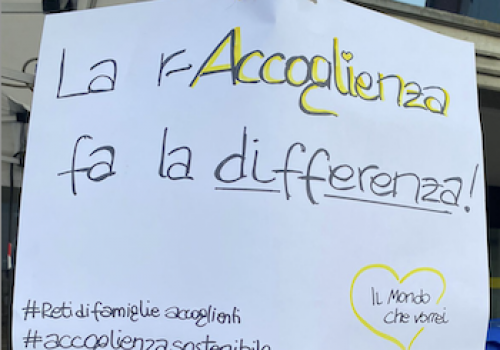 La r-Accoglienza
fa la differenza!
#Reti di famiglie accoglienti
#accoglienzasostenibile
Il Mondo
che vorrei